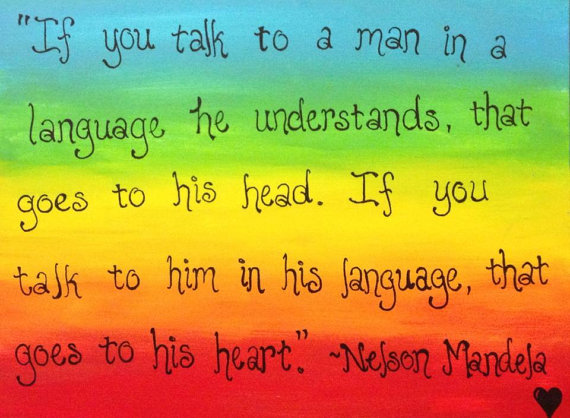 "If you talk to a man in a
language he understands, that
goes to his head. If you
talk to him in his language, that
goes to his heart." ~Nelson Mandela